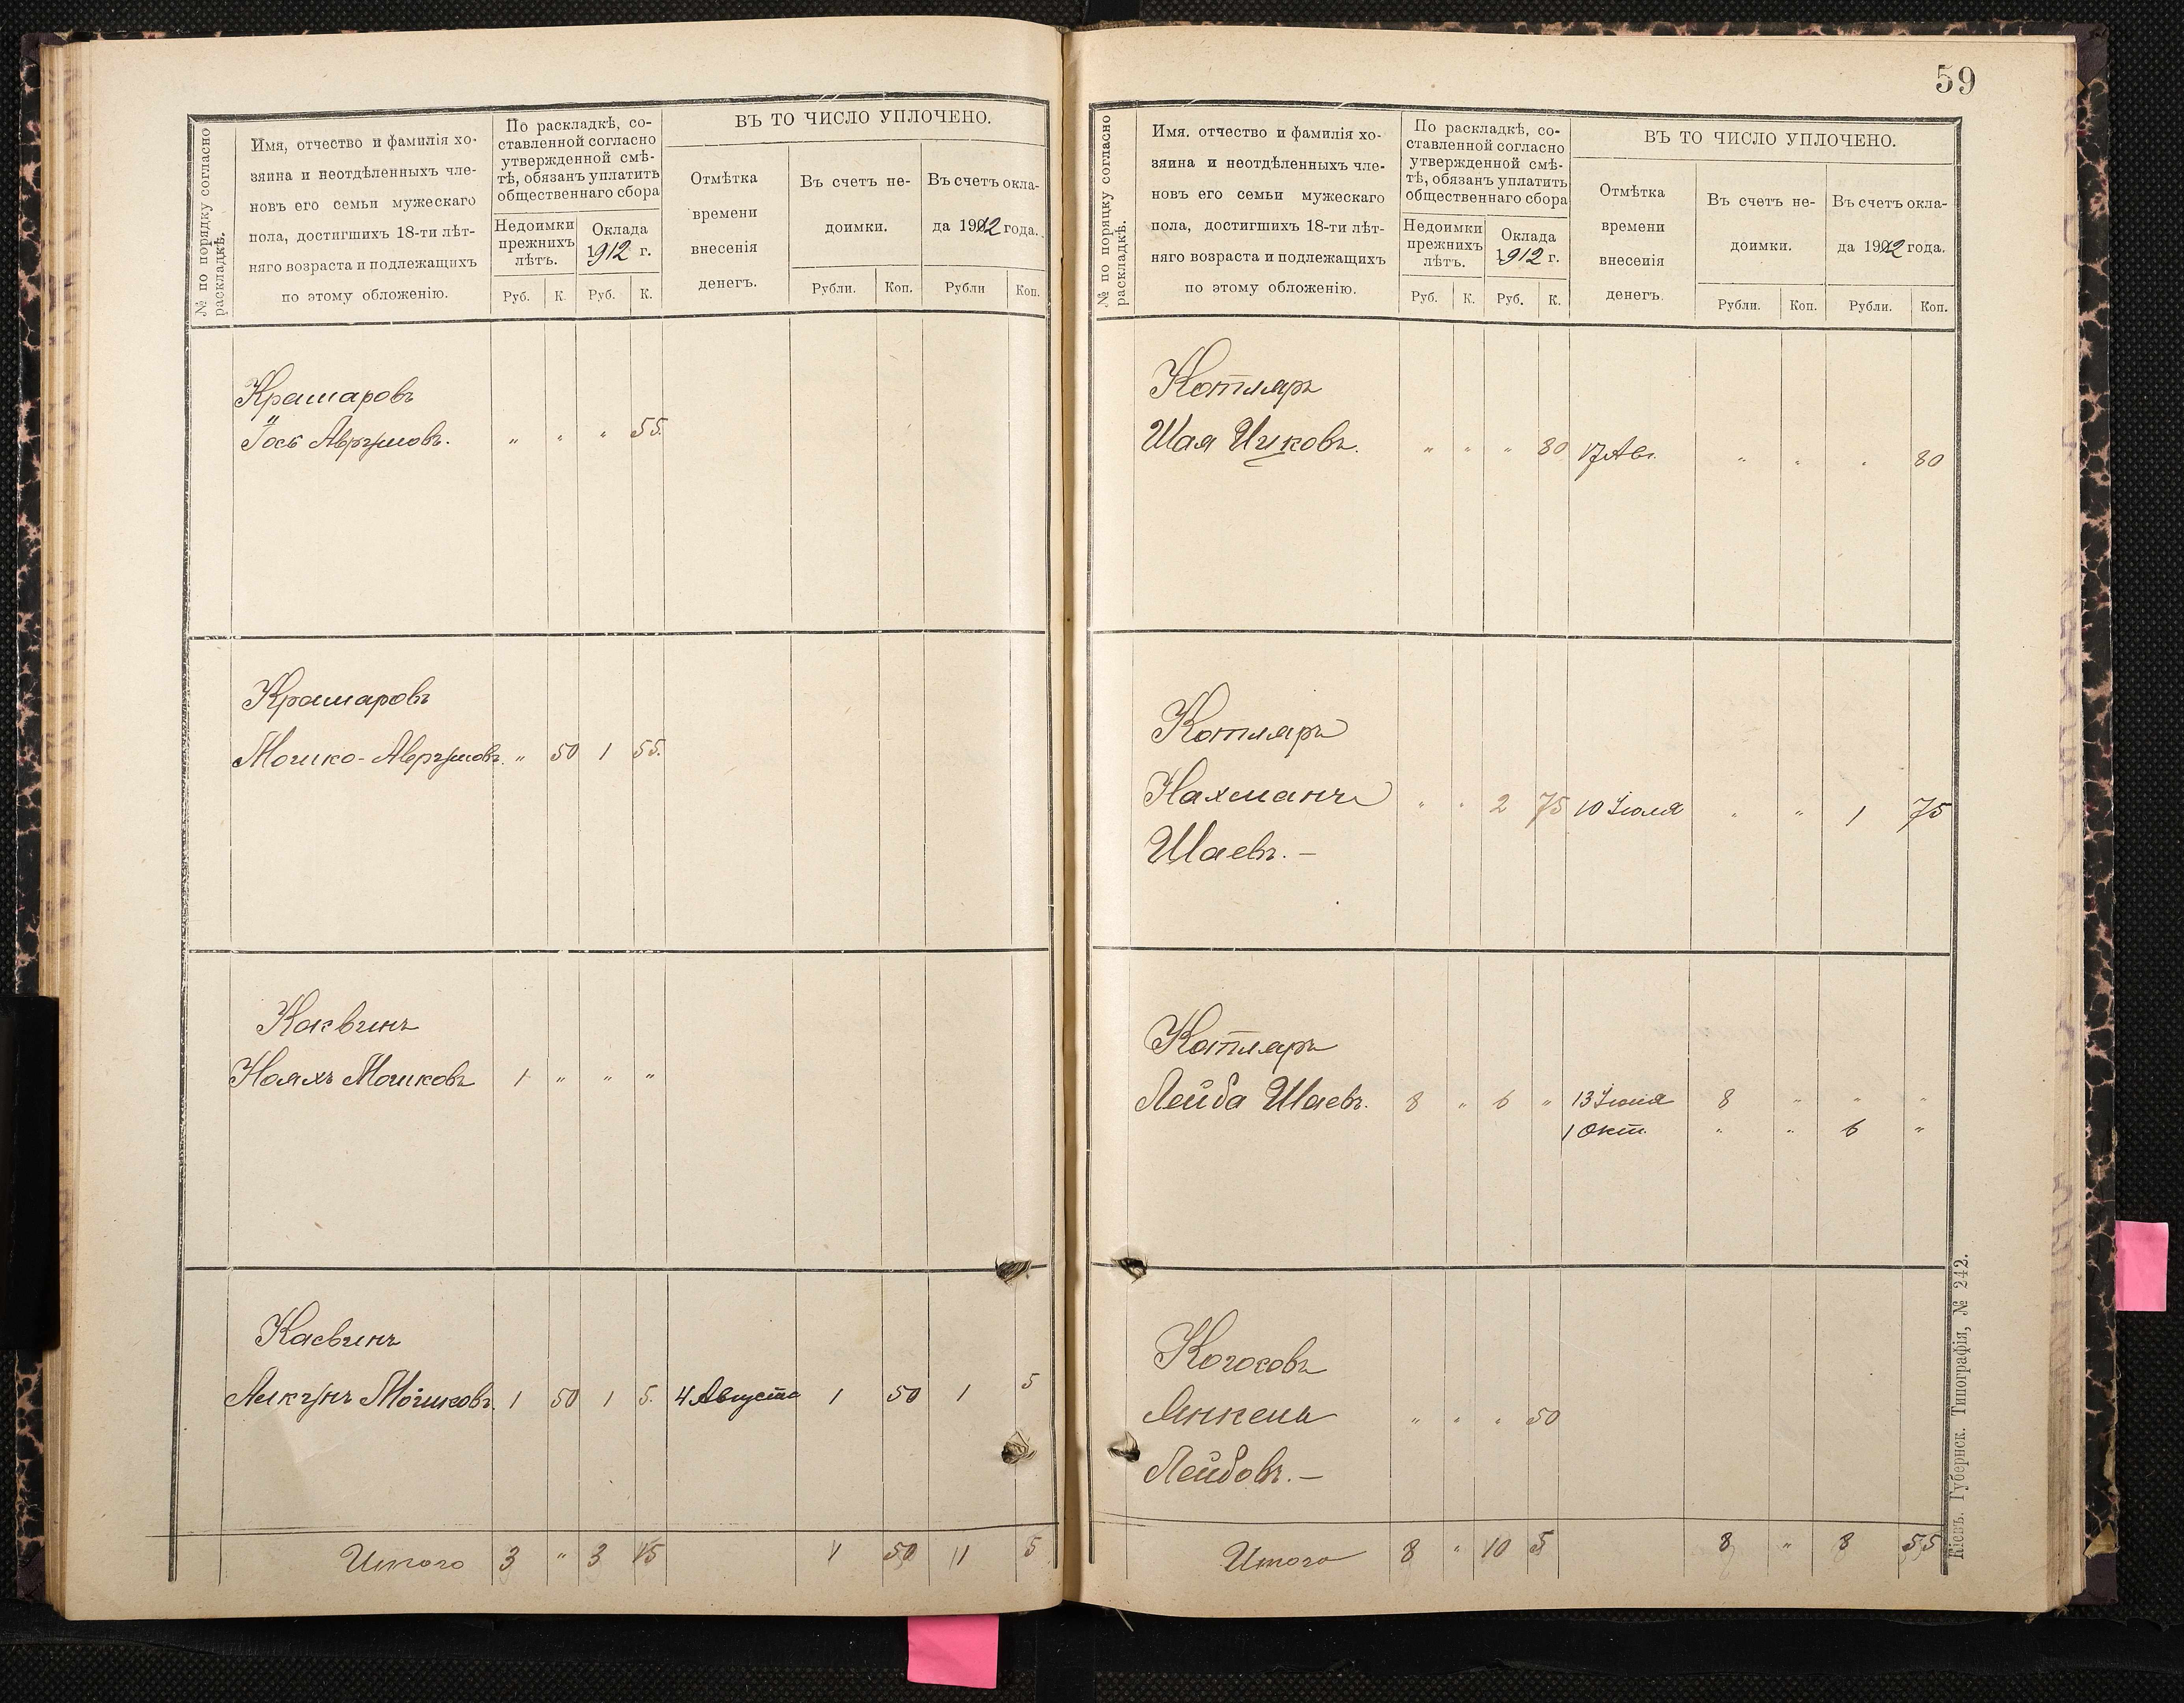 № по порядку согласно
раскладкѣ.
Имя, отчество и фамилія хо-
зяина и неотдѣленныхъ чле-
новъ его семьи мужескаго
пола, достигшихъ 18-ти лѣт-
няго возраста и подлежащихъ
по этому обложенію.
По раскладкѣ, со-
ставленной согласно
утвержденной смѣ-
тѣ, обязанъ уплатить
общественнаго сбора
Недоимки
прежнихъ
лѣтъ.
Оклада
1912 г.
Руб. К. Руб. К.
ВЪ ТО ЧИСЛО УПЛОЧЕНО.
Отмѣтка
времени
внесенія
денегъ.
Въ счетъ не-
доимки.
Рубли. Коп.
Въ счетъ окла-
да 1912 года.
Рубли Коп.
Крамаровъ
Іось Аврумовъ. " " " 55.
Крамаровъ
Мошко-Аврумовъ. " 50 1 55.
Касвинъ
Ноахъ Мошковъ 1 " " "
Касвинъ
Мошковъ. 1 50 1 5. 4 Августа 1 50 1 5
Итого 3 " 3 15 1 50 1 5
59
№ по порядку согласно
раскладкѣ.
Имя. отчество и фамилія хо-
зяина и неотдѣленныхъ чле-
новъ его семьи мужескаго
пола, достигшихъ 18-ти лѣт-
няго возраста и подлежащихъ
по этому обложенію.
По раскладкѣ, со-
ставленной согласно
утвержденной смѣ-
тѣ, обязанъ уплатить
общественнаго сбора
Недоимки
прежнихъ
лѣтъ.
Оклада
1912 г.
Руб. К. Руб. К.
ВЪ ТО ЧИСЛО УПЛОЧЕНО.
Отмѣтка
времени
внесенія
денегъ.
Въ счетъ не-
доимки.
Рубли. Коп.
Въ счетъ окла-
да 1912 года.
Рубли. Коп.
Котляръ
Шая Ицковъ. " " " 80 17 Авг. " " " 80
Котляръ
Нахманъ " " 2 75 10 Іюля " " 1 75
Шаевъ. —
Котляръ
Лейба Шаевъ. 8 " 6 " 13 Іюня 8 " " "
1 Окт. " " 6 "
Когосовъ
Янкель " " " 50
Лейбовъ. —
Итого 8 " 10 5 8 " 8 55
Кіевъ. Губернск. Типографія, № 242.